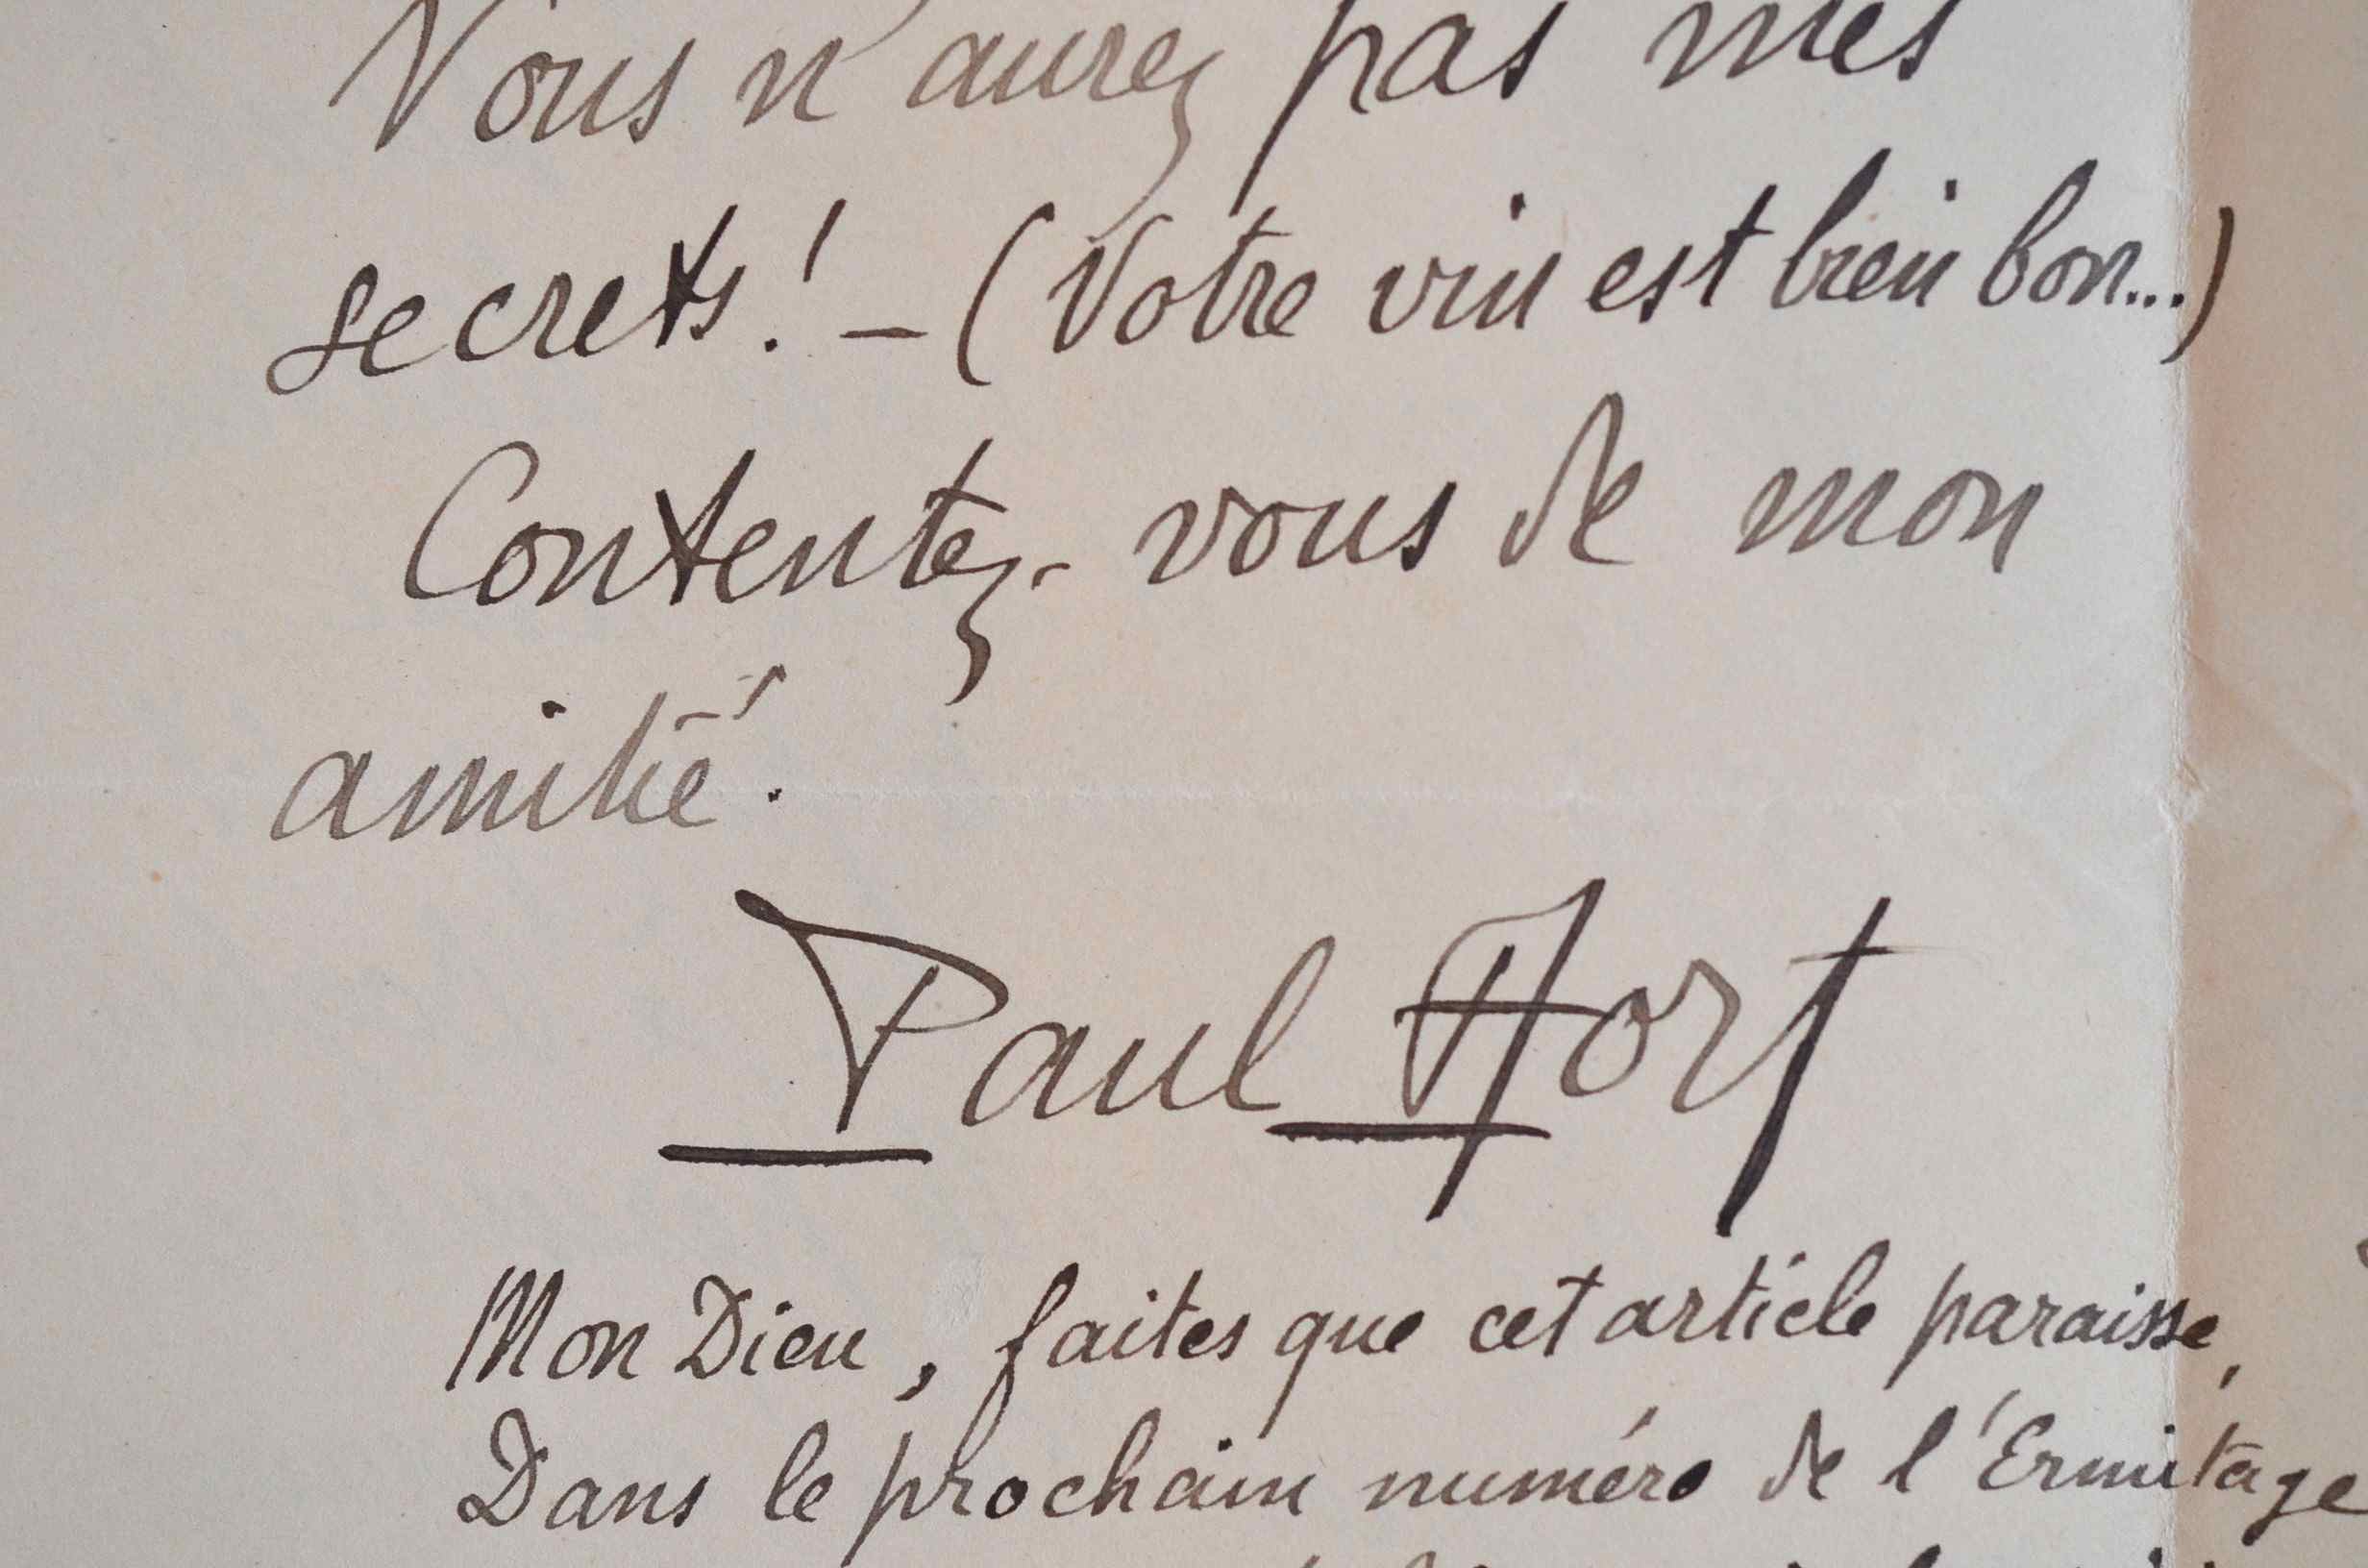 Vous n'aurez pas mes
secrets! – (Votre vin est bien bon...)
Contentez-vous de mon
amitié.
Paul Fort
Mon Dieu, faites que cet article paraisse,
Dans le prochain numéro de l'Ermitage